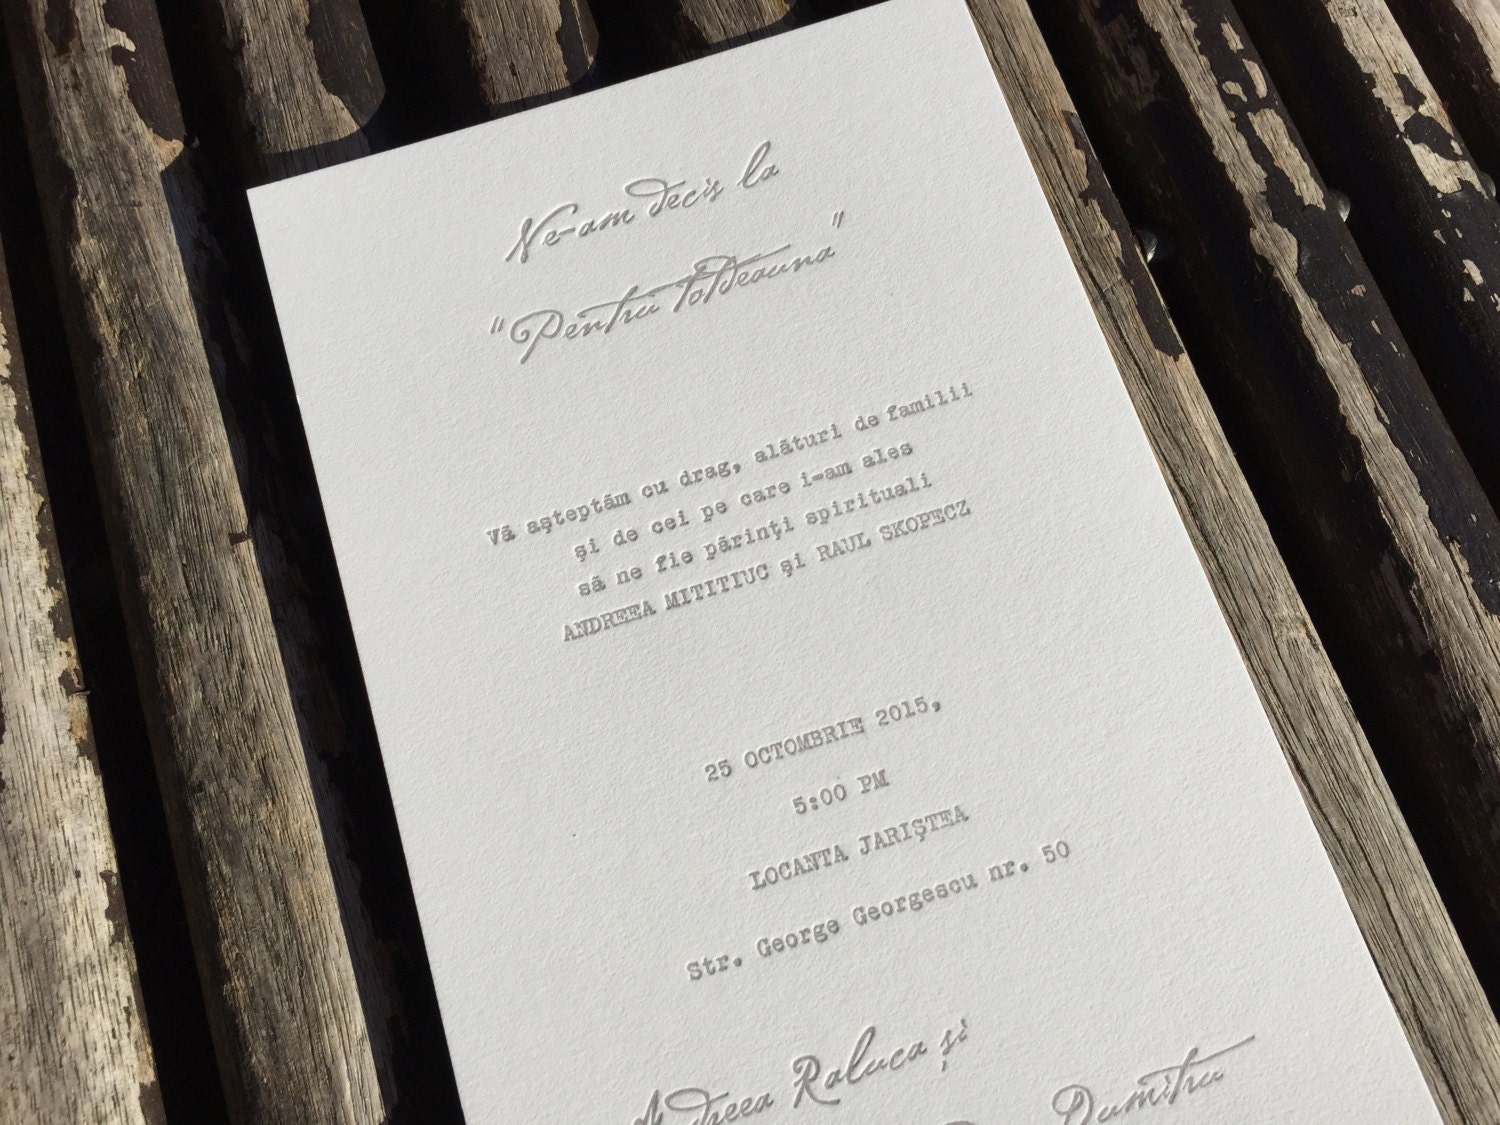 Ne-am decis la
"Pentru totdeauna"
Vă aşteptăm cu drag, alături de familii
şi de cei pe care i-am ales
să ne fie părinţi spirituali
ANDREEA MITITIUC şi RAUL SKOPECZ
25 OCTOMBRIE 2015,
5:00 PM
LOCANTA JARIŞTEA
Str. George Georgescu nr. 50
Andreea Raluca și
Dumitru